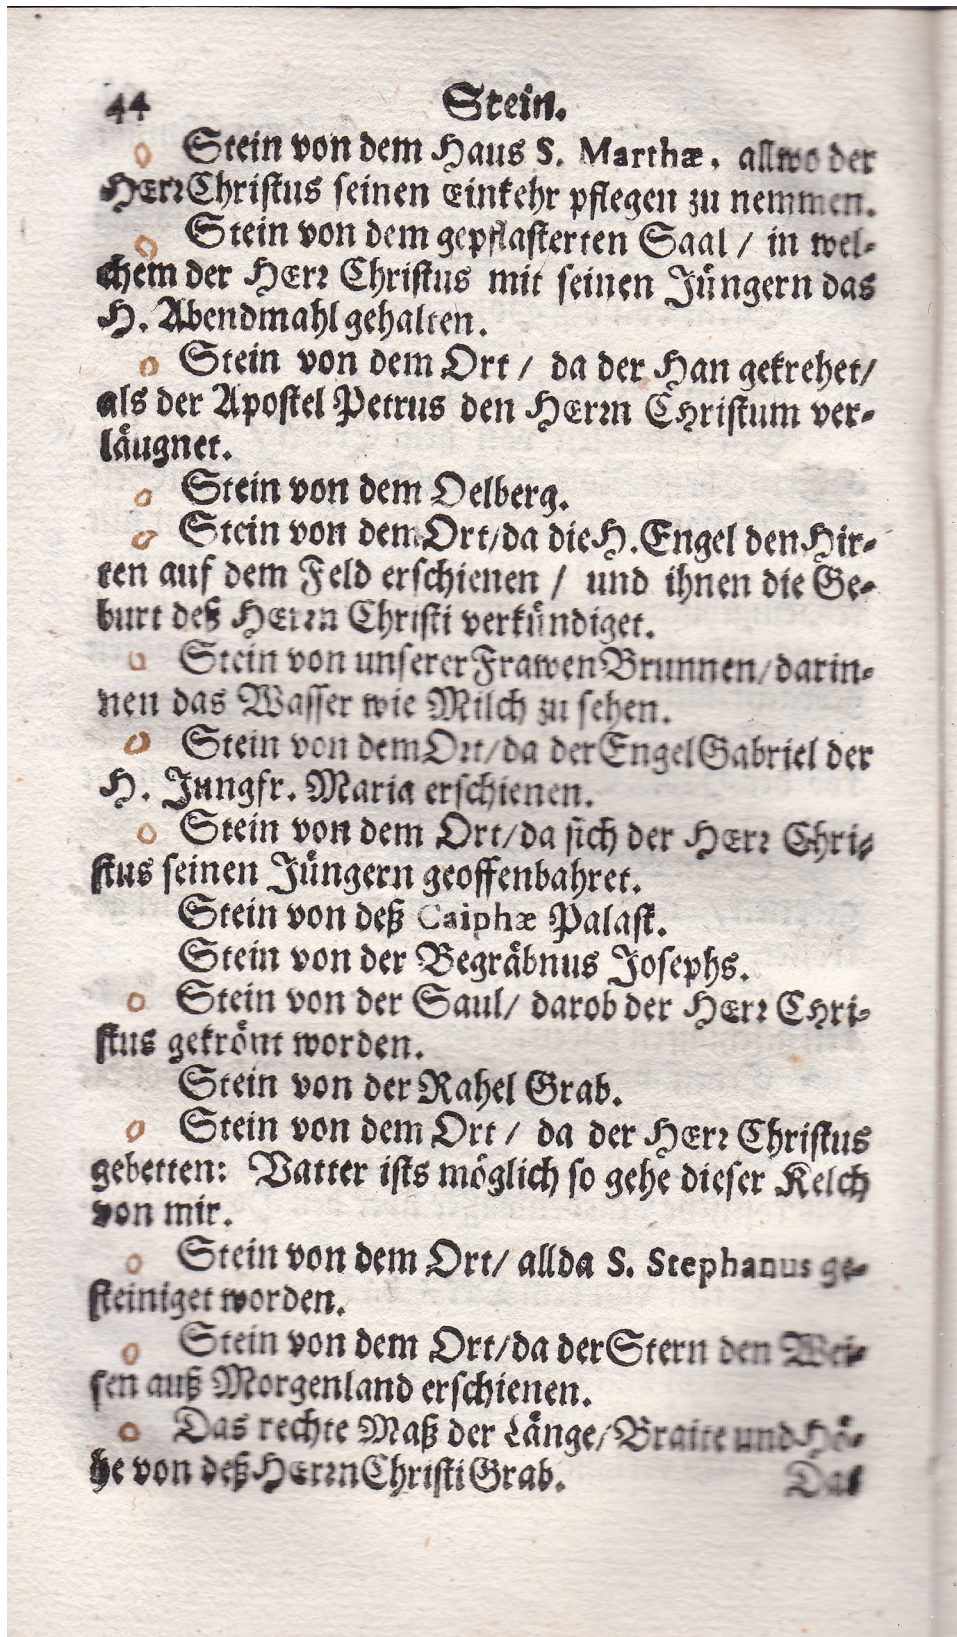 44 Stein.
Stein von dem Haus S. Marthæ, allwo der
HErr Christus seinen Einkehr pflegen zu nemmen.
Stein von dem gepflasterten Saal / in wel-
chem der HErr Christus mit seinen Jüngern das
H. Abendmahl gehalten.
Stein von dem Ort / da der Han gekrehet /
als der Apostel Petrus den HErrn Christum ver-
läugnet.
Stein von dem Oelberg.
Stein von dem Ort / da die H. Engel den Hir-
ten auf dem Feld erschienen / und ihnen die Ge-
burt deß HErrn Christi verkündiget.
Stein von unserer Frawen Brunnen / darin-
nen das Wasser wie Milch zu sehen.
Stein von dem Ort / da der Engel Gabriel der
H. Jungfr. Maria erschienen.
Stein von dem Ort / da sich der HErr Chri-
stus seinen Jüngern geoffenbahret.
Stein von deß Caiphæ Palast.
Stein von der Begräbnus Josephs.
Stein von der Saul / darob der HErr Chri-
stus gekrönt worden.
Stein von der Rahel Grab.
Stein von dem Ort / da der HErr Christus
gebetten: Vatter ists möglich so gehe dieser Kelch
von mir.
Stein von dem Ort / allda S. Stephanus ge-
steiniget worden.
Stein von dem Ort / da der Stern den Wei-
sen auß Morgenland erschienen.
Das rechte Maß der Länge / Braite und Hö-
he von deß HErrn Christi Grab.
Das